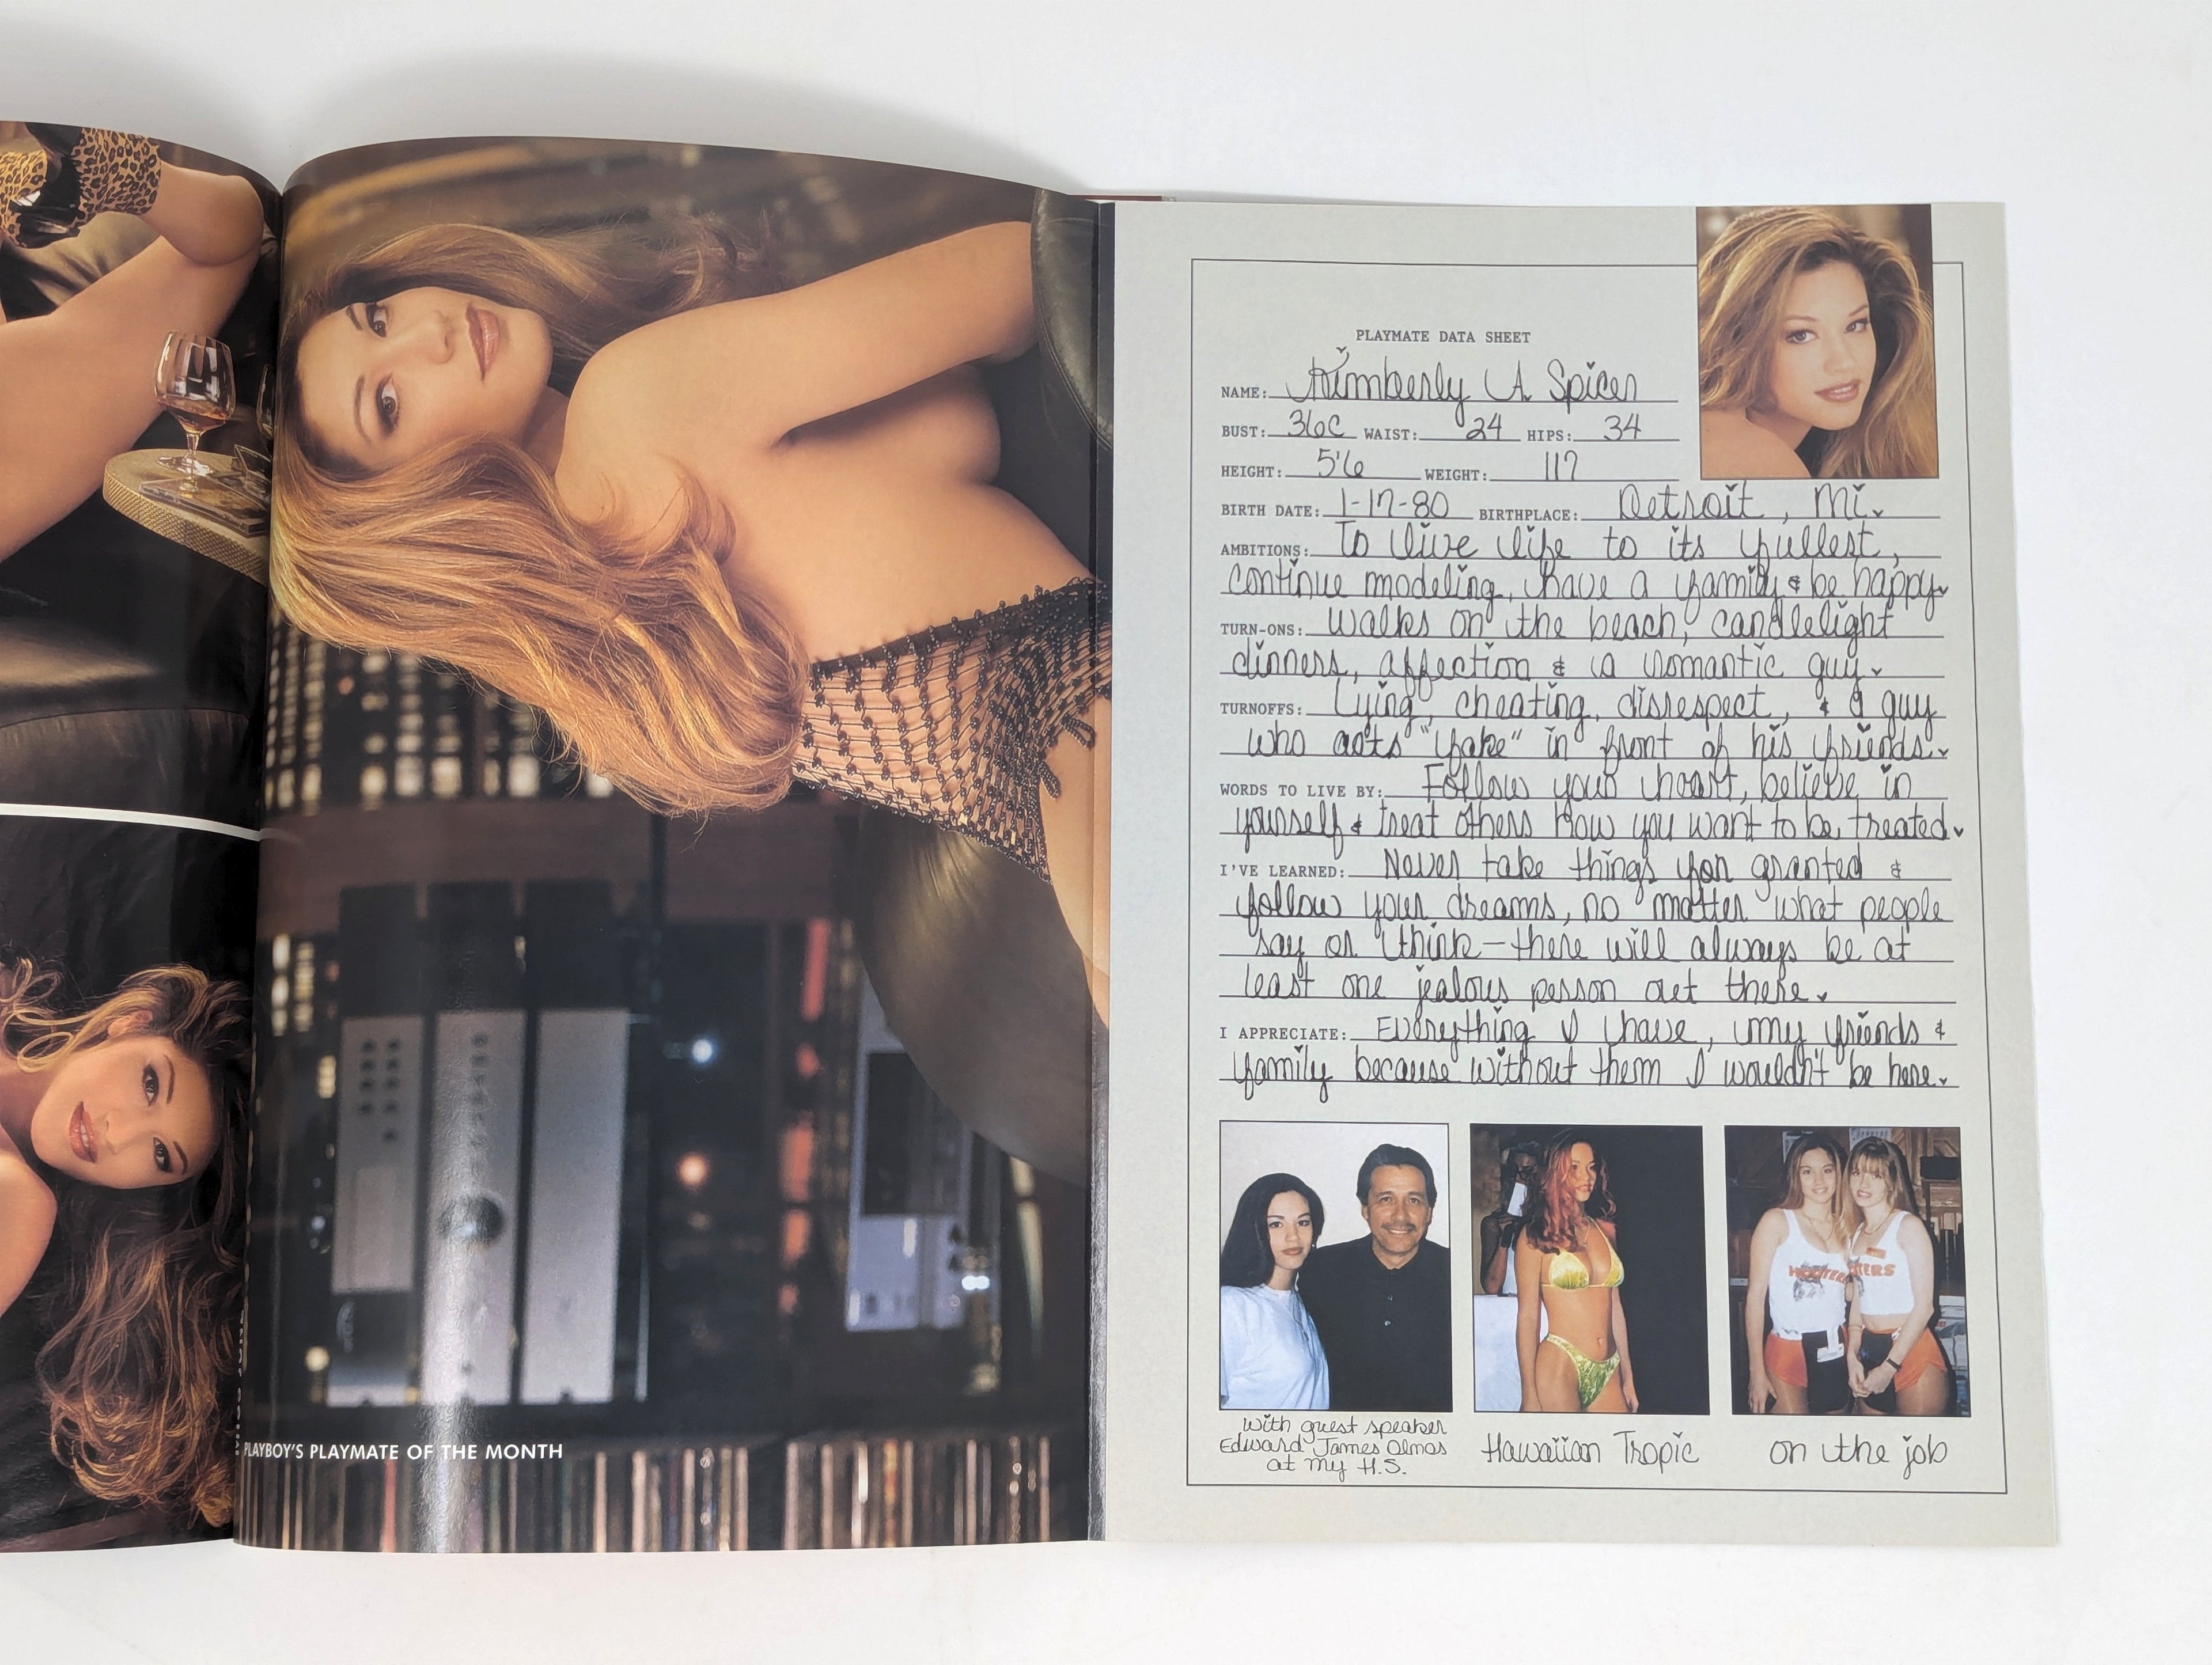 PLAYBOY'S PLAYMATE OF THE MONTH
PLAYMATE DATA SHEET
NAME: Kimberly A Spicer
BUST: 36C WAIST: 24 HIPS: 34
HEIGHT: 5'6 WEIGHT: 117
BIRTH DATE: 1-17-80 BIRTHPLACE: Detroit, Mi.
AMBITIONS: To live life to its fullest,
continue modeling, have a family & be happy.
TURN-ONS: Walks on the beach, candlelight
dinners, affection & a romantic guy.
TURNOFFS: Lying, cheating, disrespect, & a guy
who acts "fake" in front of his friends.
WORDS TO LIVE BY: Follow your heart, believe in
yourself & treat others how you want to be treated.
I'VE LEARNED: Never take things for granted &
follow your dreams, no matter what people
say or think - there will always be at
least one jealous person out there.
I APPRECIATE: Everything I have, my friends &
family because without them I wouldn't be here.
HOOTERS
with guest speaker
Edward James Olmos
at my H.S.
Hawaiian Tropic
on the job